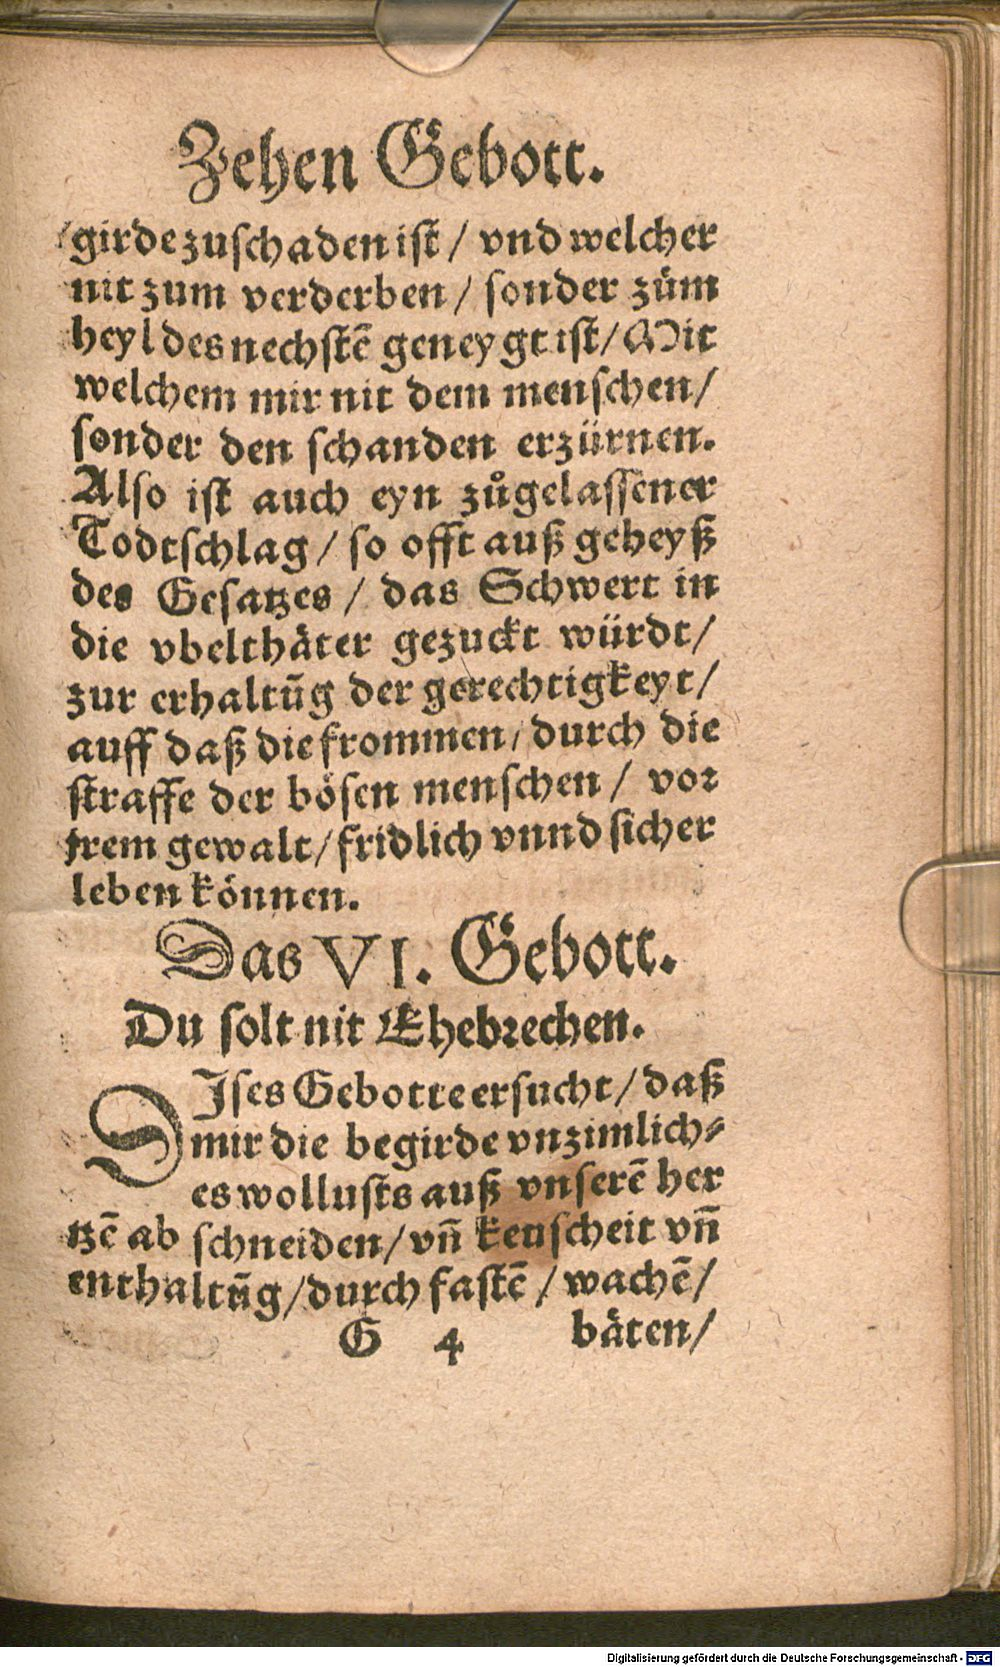 Zehen Gebott.
girde zuschaden ist / vnd welcher
nit zum verderben / sonder zům
heyl des nechstē geneygt ist / Mit
welchem mir nit dem menschen /
sonder den schanden erzürnen.
Also ist auch eyn zůgelassener
Todtschlag / so offt auß geheyß
des Gesatzes / das Schwert in
die vbelthäter gezuckt würdt /
zur erhaltūg der gerechtigkeyt /
auff daß die frommen / durch die
straffe der bösen menschen / vor
jrem gewalt / fridlich vnnd sicher
leben können.
Das VI. Gebott.
Du solt nit Ehebrechen.
DIses Gebotte ersucht / daß
mir die begirde vnzimlich⸗
es wollusts auß vnserē her
tzē ab schneiden / vn̄ keuscheit vn̄
enthaltūg / durch fastē / wachē /
G 4 bäten /
Digitalisierung gefördert durch die Deutsche Forschungsgemeinschaft - DFG